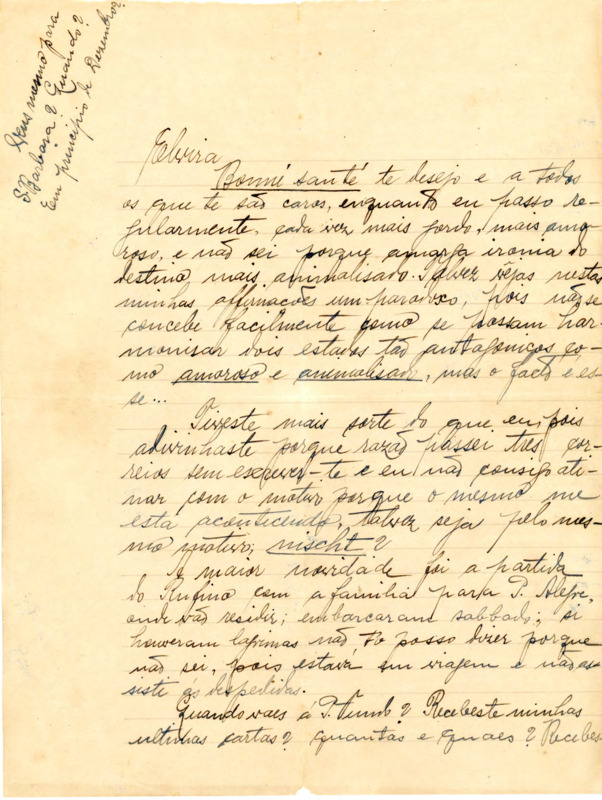 Vens mesmo para
S. Barbara? Quando?
Em principio de Dezembro?
Elvira
Bonne santé te desejo e a todos
os que te são caros, enquanto eu passo re-
gularmente, cada vez mais gordo, mais amo-
roso, e não sei porque amarga ironia do
destino mais animalisado. Talvez vejas nestas
minhas affirmações um paradoxo, pois não se
concebe facilmente como se possam har-
monisar dois estados tão antagonicos co-
mo amoroso e animalisado, mas o facto é es-
se...
Tiveste mais sorte do que eu, pois
adivinhaste porque razão passei tres cor-
reios sem escrever-te e eu não consigo ati-
nar com o motivo porque o mesmo me
esta acontecendo, talvez seja pelo mes-
mo motivo, nischt?
A maior novidade foi a partida
do Rufino com a familia para P. Alegre,
onde vão residir; embarcaram sabbado; si
houveram lagrimas não te posso dizer porque
não sei, pois estava em viagem e não as-
sisti ás despedidas.
Quando vaes á P. Fundo? Recebeste minhas
ultimas cartas? quantas e quaes? Recebes-